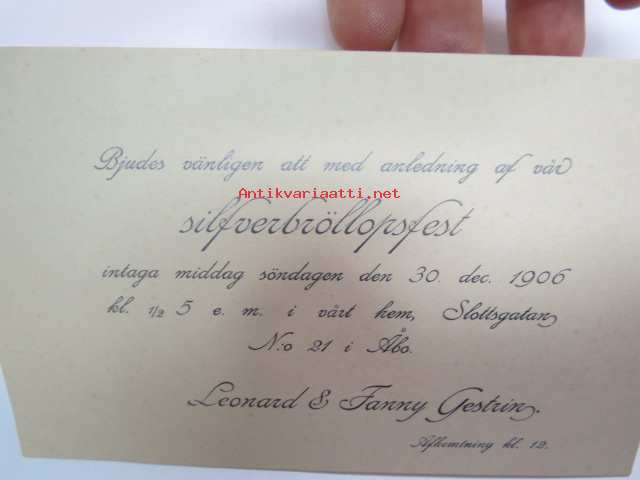 Bjudes vänligen att med anledning af vår
Antikvariaatti.net
silfverbröllopsfest
intaga middag söndagen den 30. dec. 1906
kl. 1/2 5 e. m. i vårt hem, Slottsgatan
N:o 21 i Åbo.
Leonard & Fanny Gestrin.
Afhemtning kl. 12.